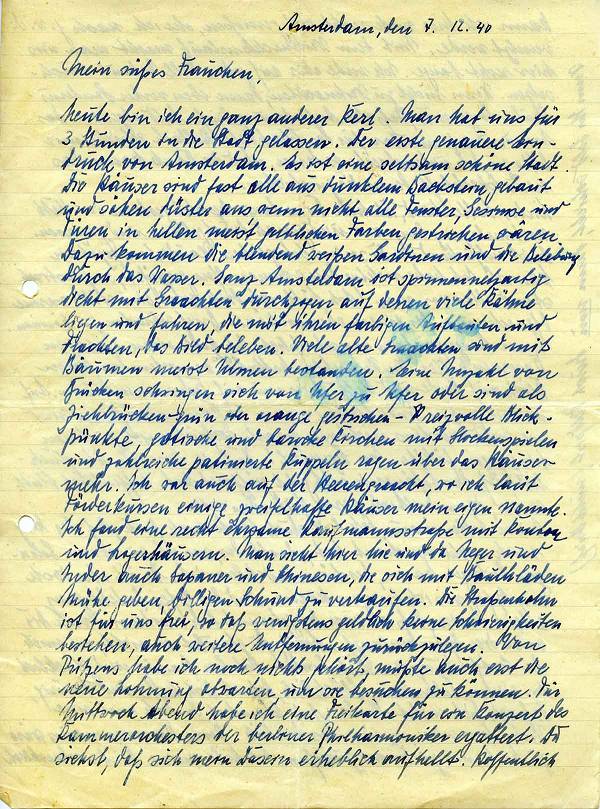 Amsterdam, den 7. 12. 40
Mein süßes Frauchen,
Heute bin ich ein ganz anderer Kerl. Man hat uns für
3 Stunden in die Stadt gelassen. Der erste genauere Ein-
druck von Amsterdam. Es ist eine seltsam schöne Stadt.
Die Häuser sind fast alle aus dunklem Backstein gebaut
und sähen düster aus, wenn nicht alle Fenster, Gesimse und
Türen in hellen meist gelblichen Farben gestrichen wären.
Dazu kommen die blendend weißen Gardinen und die Belebung
durch das Wasser. Ganz Amsterdam ist spinnennetzartig
dicht mit Graachten durchzogen auf denen viele Kähne
liegen und fahren, die mit ihren farbigen Aufbauten und
Frachten, das Bild beleben. Viele alte Graachten sind mit
Bäumen meist Ulmen bestanden. Eine Unzahl von
Brücken schwingen sich von Ufer zu Ufer oder sind als
Ziehbrücken - grün oder orange gestrichen - reizvolle Blick-
pünkte, gotische und barocke Kirchen mit Glockenspielen
und zahlreiche patinierte Kuppeln ragen über das Häuser
meer. Ich war auch auf der Heerengracht, wo ich laut
Förderkursen einige zweifelhafte Häuser mein eigen nannte.
Ich fand eine recht ehrsame Kaufmannsstraße mit Kontoren
und Lagerhäusern. Man sieht hier hie und da Neger und
Inder auch Japaner und Chinesen, die sich mit Bauchläden
Mühe geben, billigen Schund zu verkaufen. Die Straßenbahn
ist für uns frei, so daß wenigstens geldlich keine Schwierigkeiten
bestehen, auch weitere Entfernungen zurückzulegen. Von
habe ich noch nichts gehört, müßte auch erst die
neue Löhnung abwarten um sie besuchen zu können. Für
Mittwoch Abend habe ich eine Freikarte für ein Konzert des
Kammerorchesters der berliner Philharmoniker ergattert. Du
siehst, daß sich mein Dasein erheblich aufhellt. Hoffentlich